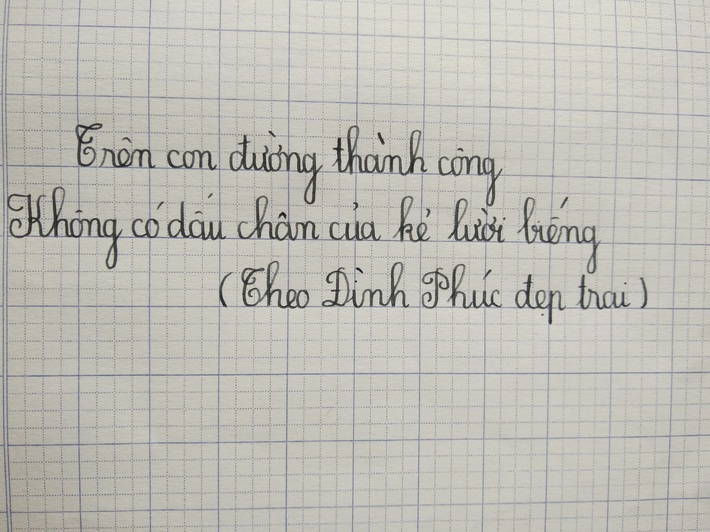 Trên con đường thành công
Không có dấu chân của kẻ lười biếng
(Theo Đình Phúc đẹp trai)